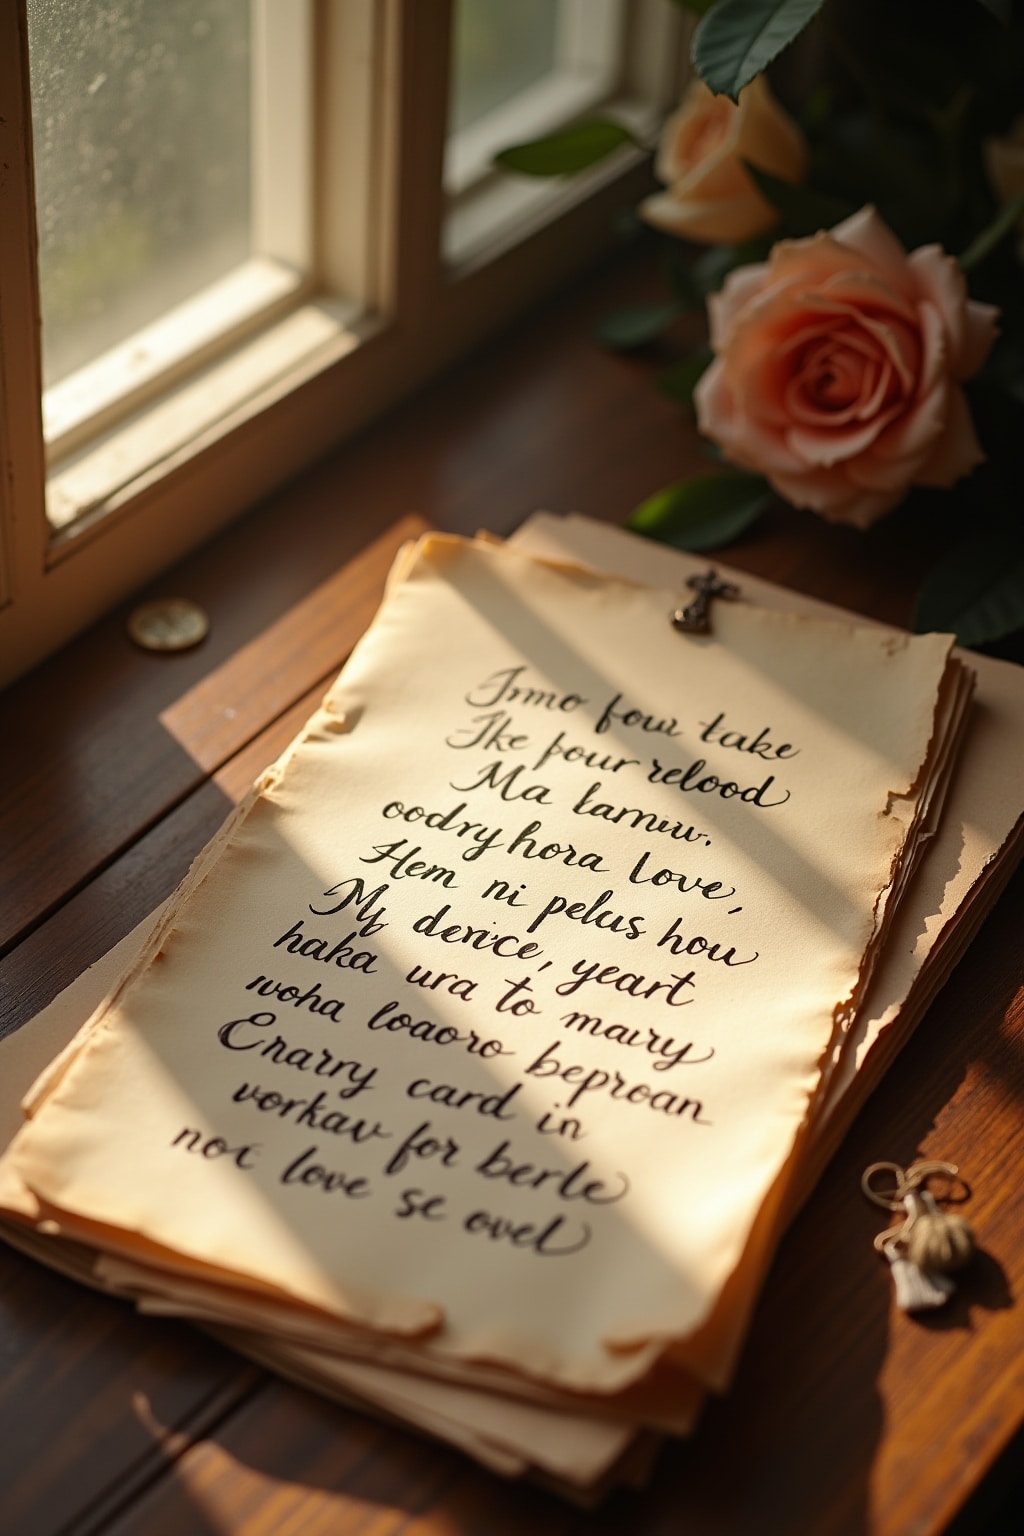 Irmo four take
Ike pour relood
Ma karnuw.
oodry hora love,
Hem ni pelus hou
My derice, yeart
haka ura to maury
woha loaoro beproan
Enarry card in
vorkav for berle
not love se ovel